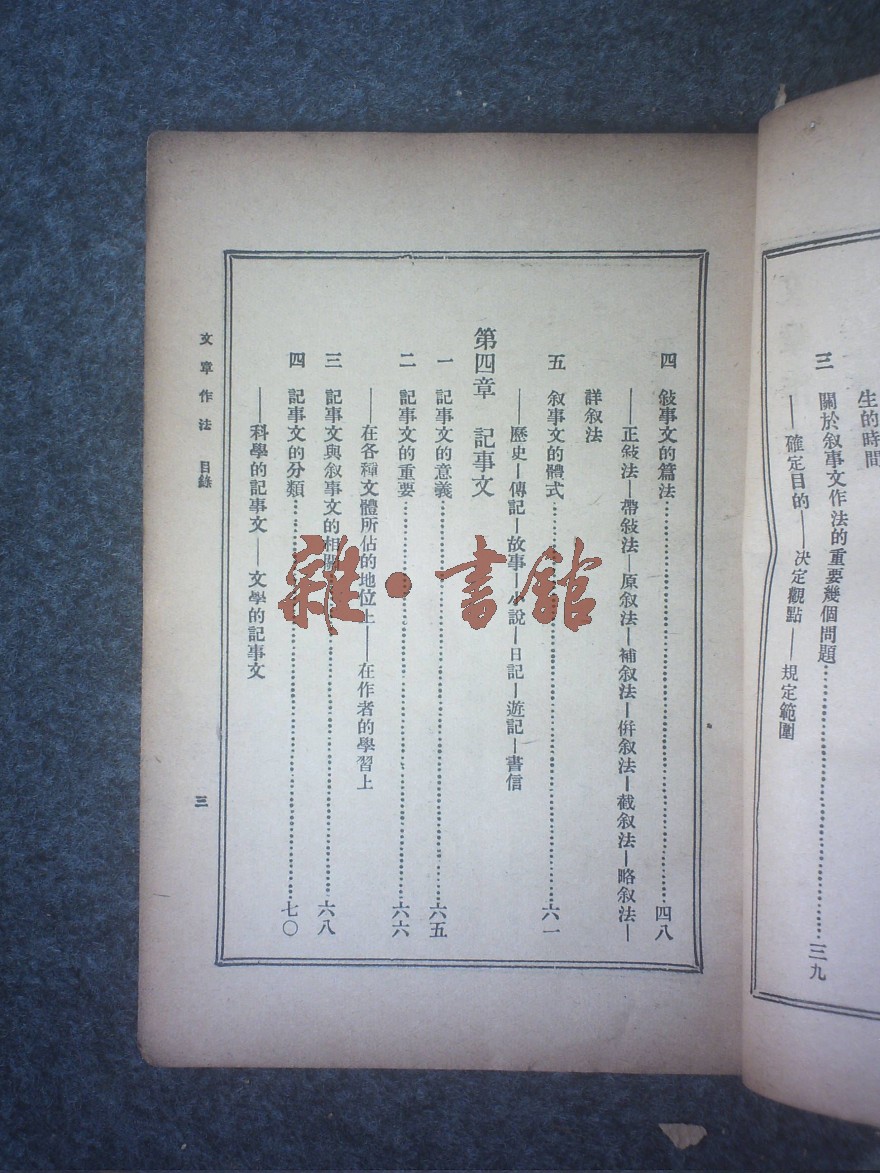 生的時間
三　關於叙事文作法的重要幾個問題……三九
——確定目的——決定觀點——規定範圍
四　敍事文的篇法……四八
——正敍法—帶敍法—原叙法—補叙法—倂叙法—截叙法—略叙法—
詳叙法
五　叙事文的體式……六一
——歷史—傳記—故事—小說—日記—遊記—書信
第四章　記事文
一　記事文的意義……六五
二　記事文的重要……六六
——在各種文體所佔的地位上——在作者的學習上
三　記事文與叙事文的相關……六八
四　記事文的分類……七〇
——科學的記事文——文學的記事文
文章作法　目錄
三
雜·書館